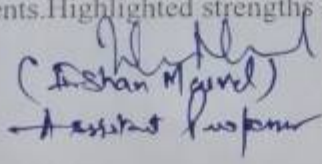 ents.Highlighted strengths
(Ishan
Assistant Professor